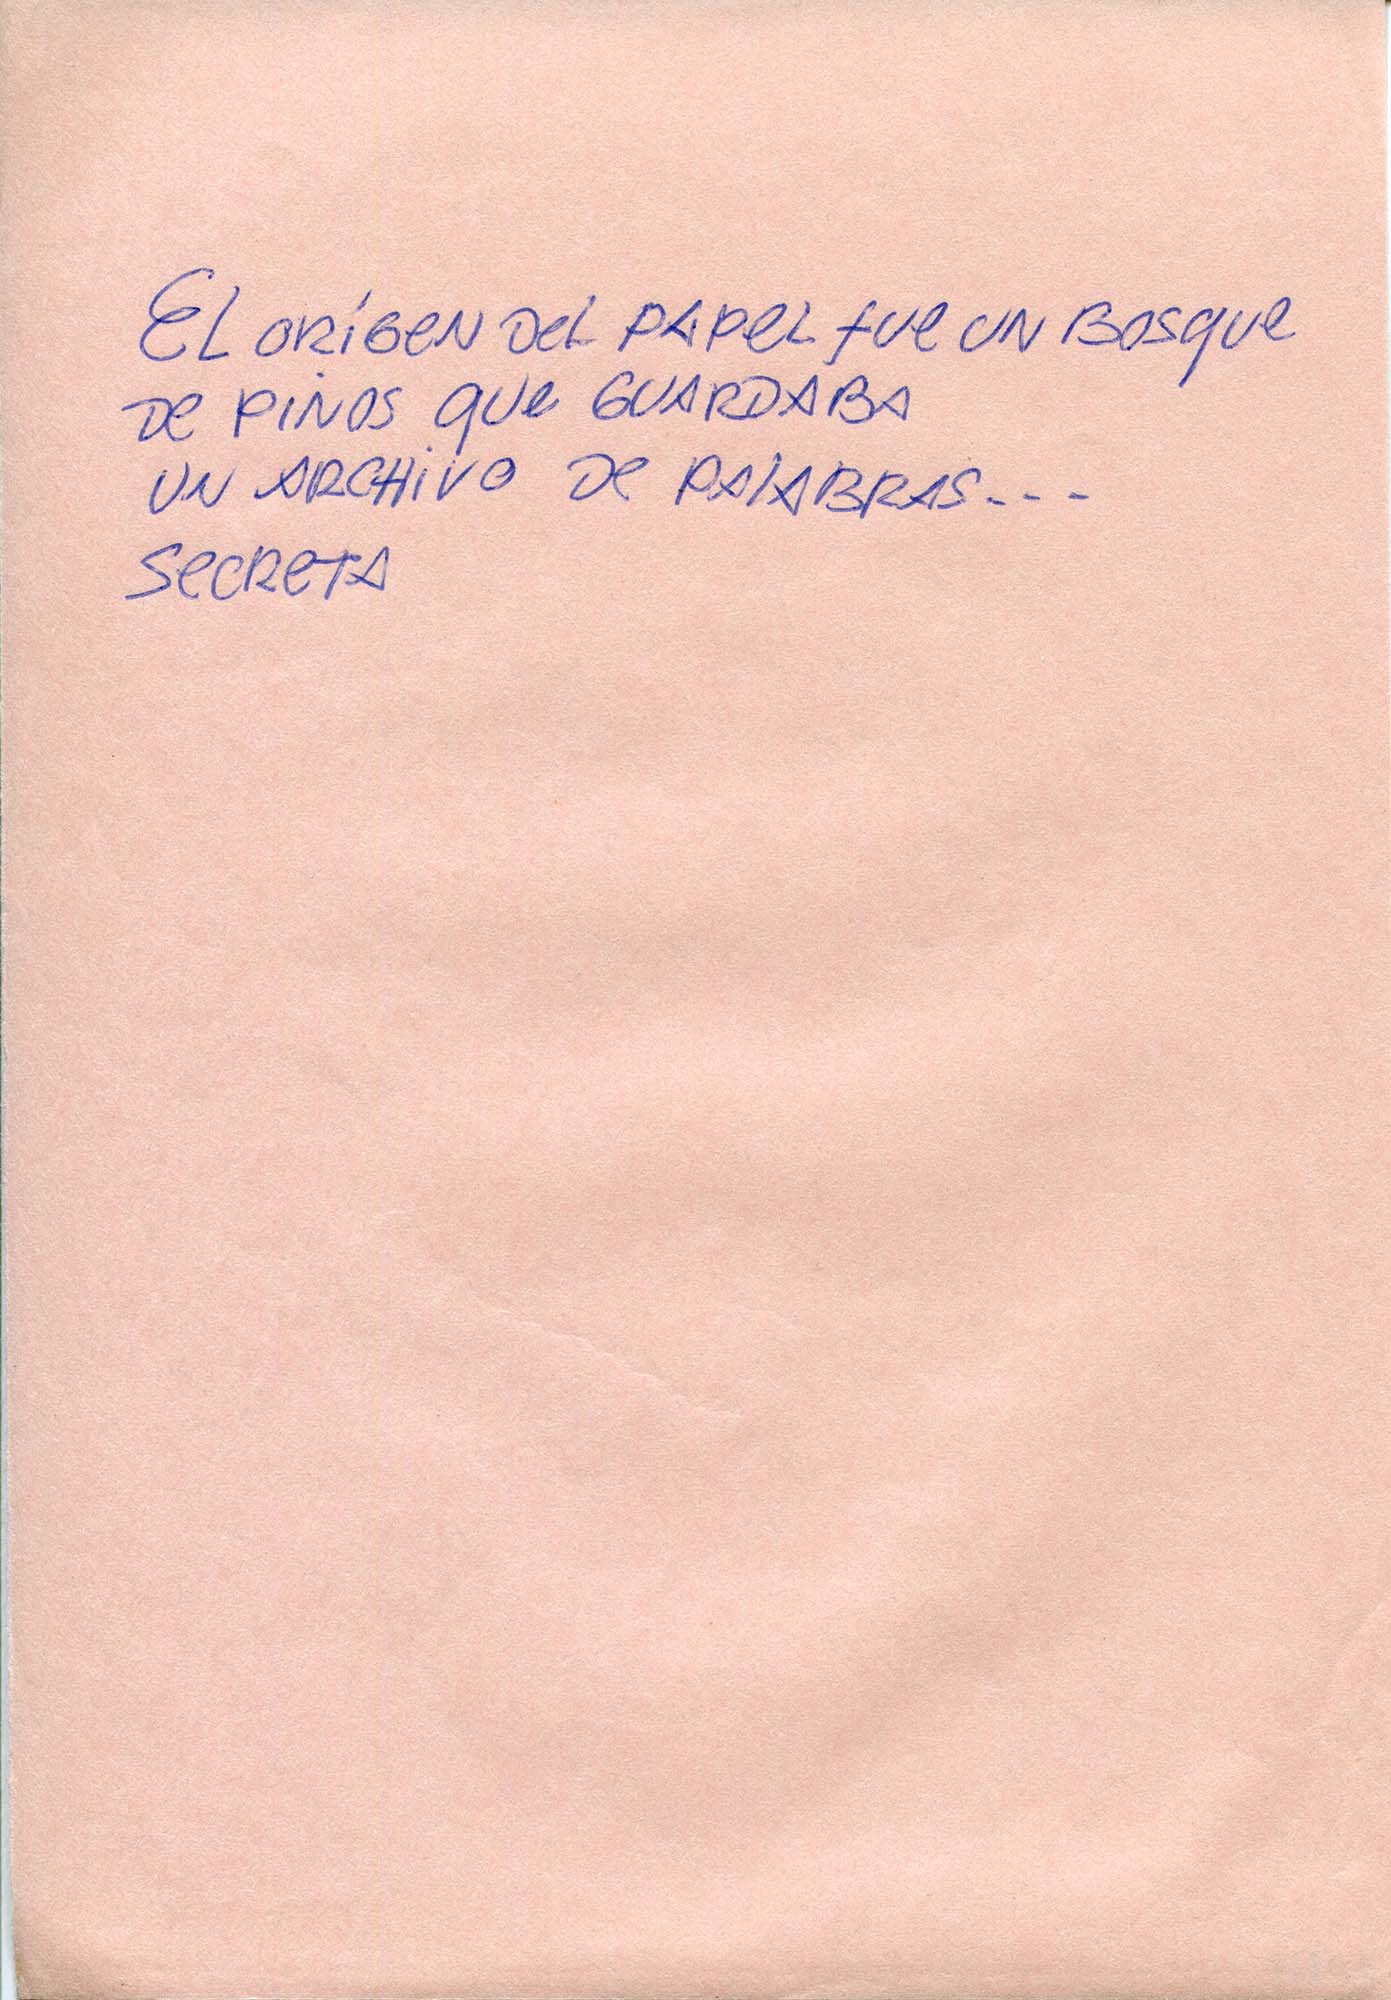 El orígen del papel fue un bosque
de pinos que guardaba
un archivo de palabras...
secreta